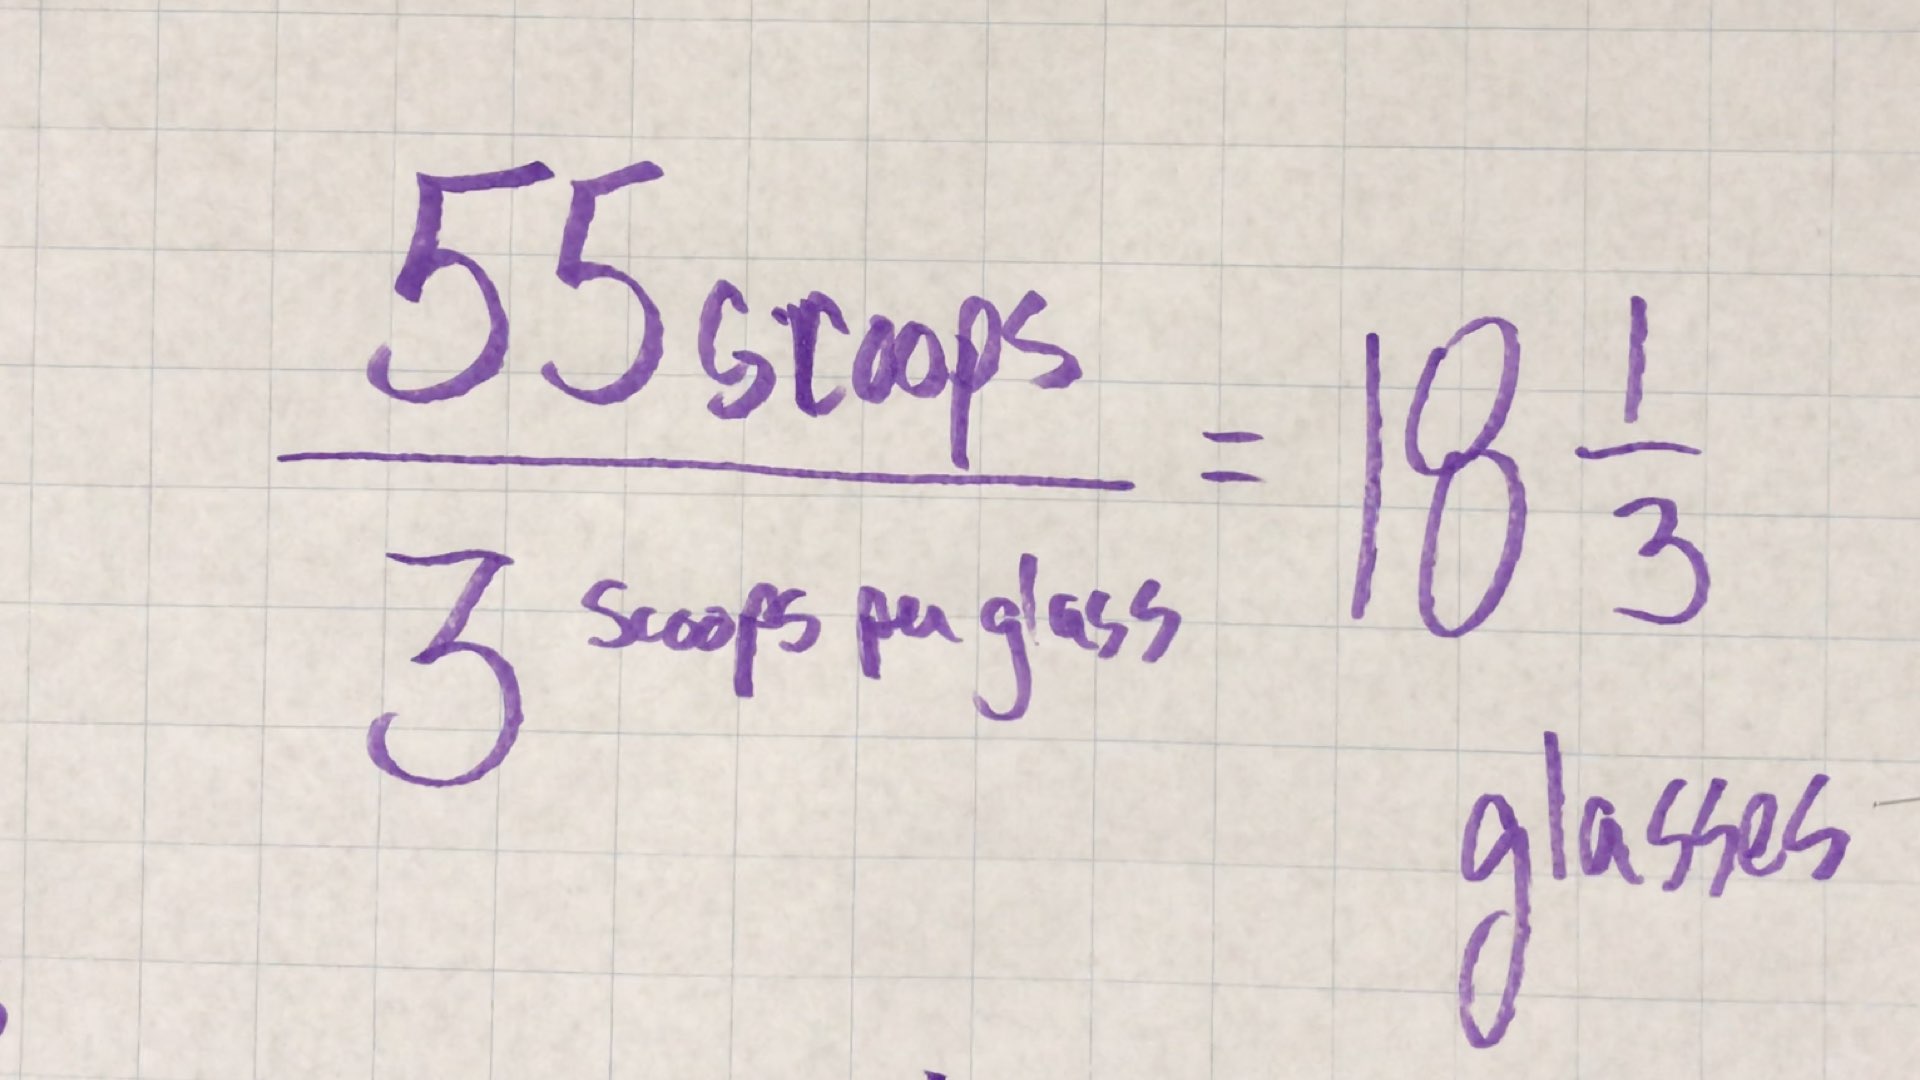 55 scoops
3 scoops per glass
= 18 1/3
glasses